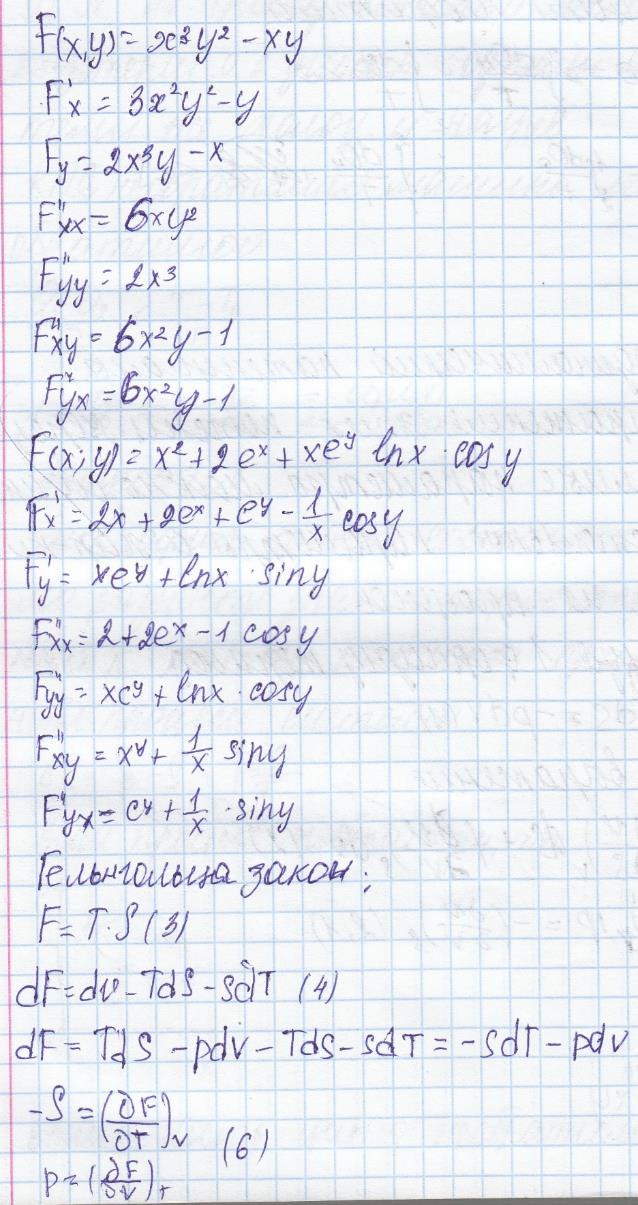 F(x,y) = x³y² - xy
F'x = 3x²y² - y
Fy = 2x³y - x
F"xx = 6xy²
F"yy = 2x³
F"xy = 6x²y - 1
F"yx = 6x²y - 1
F(x;y) = x² + 2eˣ + xeʸ lnx · cosy
Fx' = 2x + 2eˣ + eʸ - 1/x cosy
F'y = xeʸ + lnx · siny
F"xx = 2 + 2eˣ - 1 cosy
F"yy = xeʸ + lnx · cosy
F"xy = xʸ + 1/x siny
F"yx = eʸ + 1/x · siny
Гельнгольца закон:
F = T·S (3)
dF = dv - TdS - SdT (4)
dF = TdS - pdv - Tds - sdT = -SdT - pdv
-S = (∂F/∂T)v (6)
p = (∂F/∂V)т